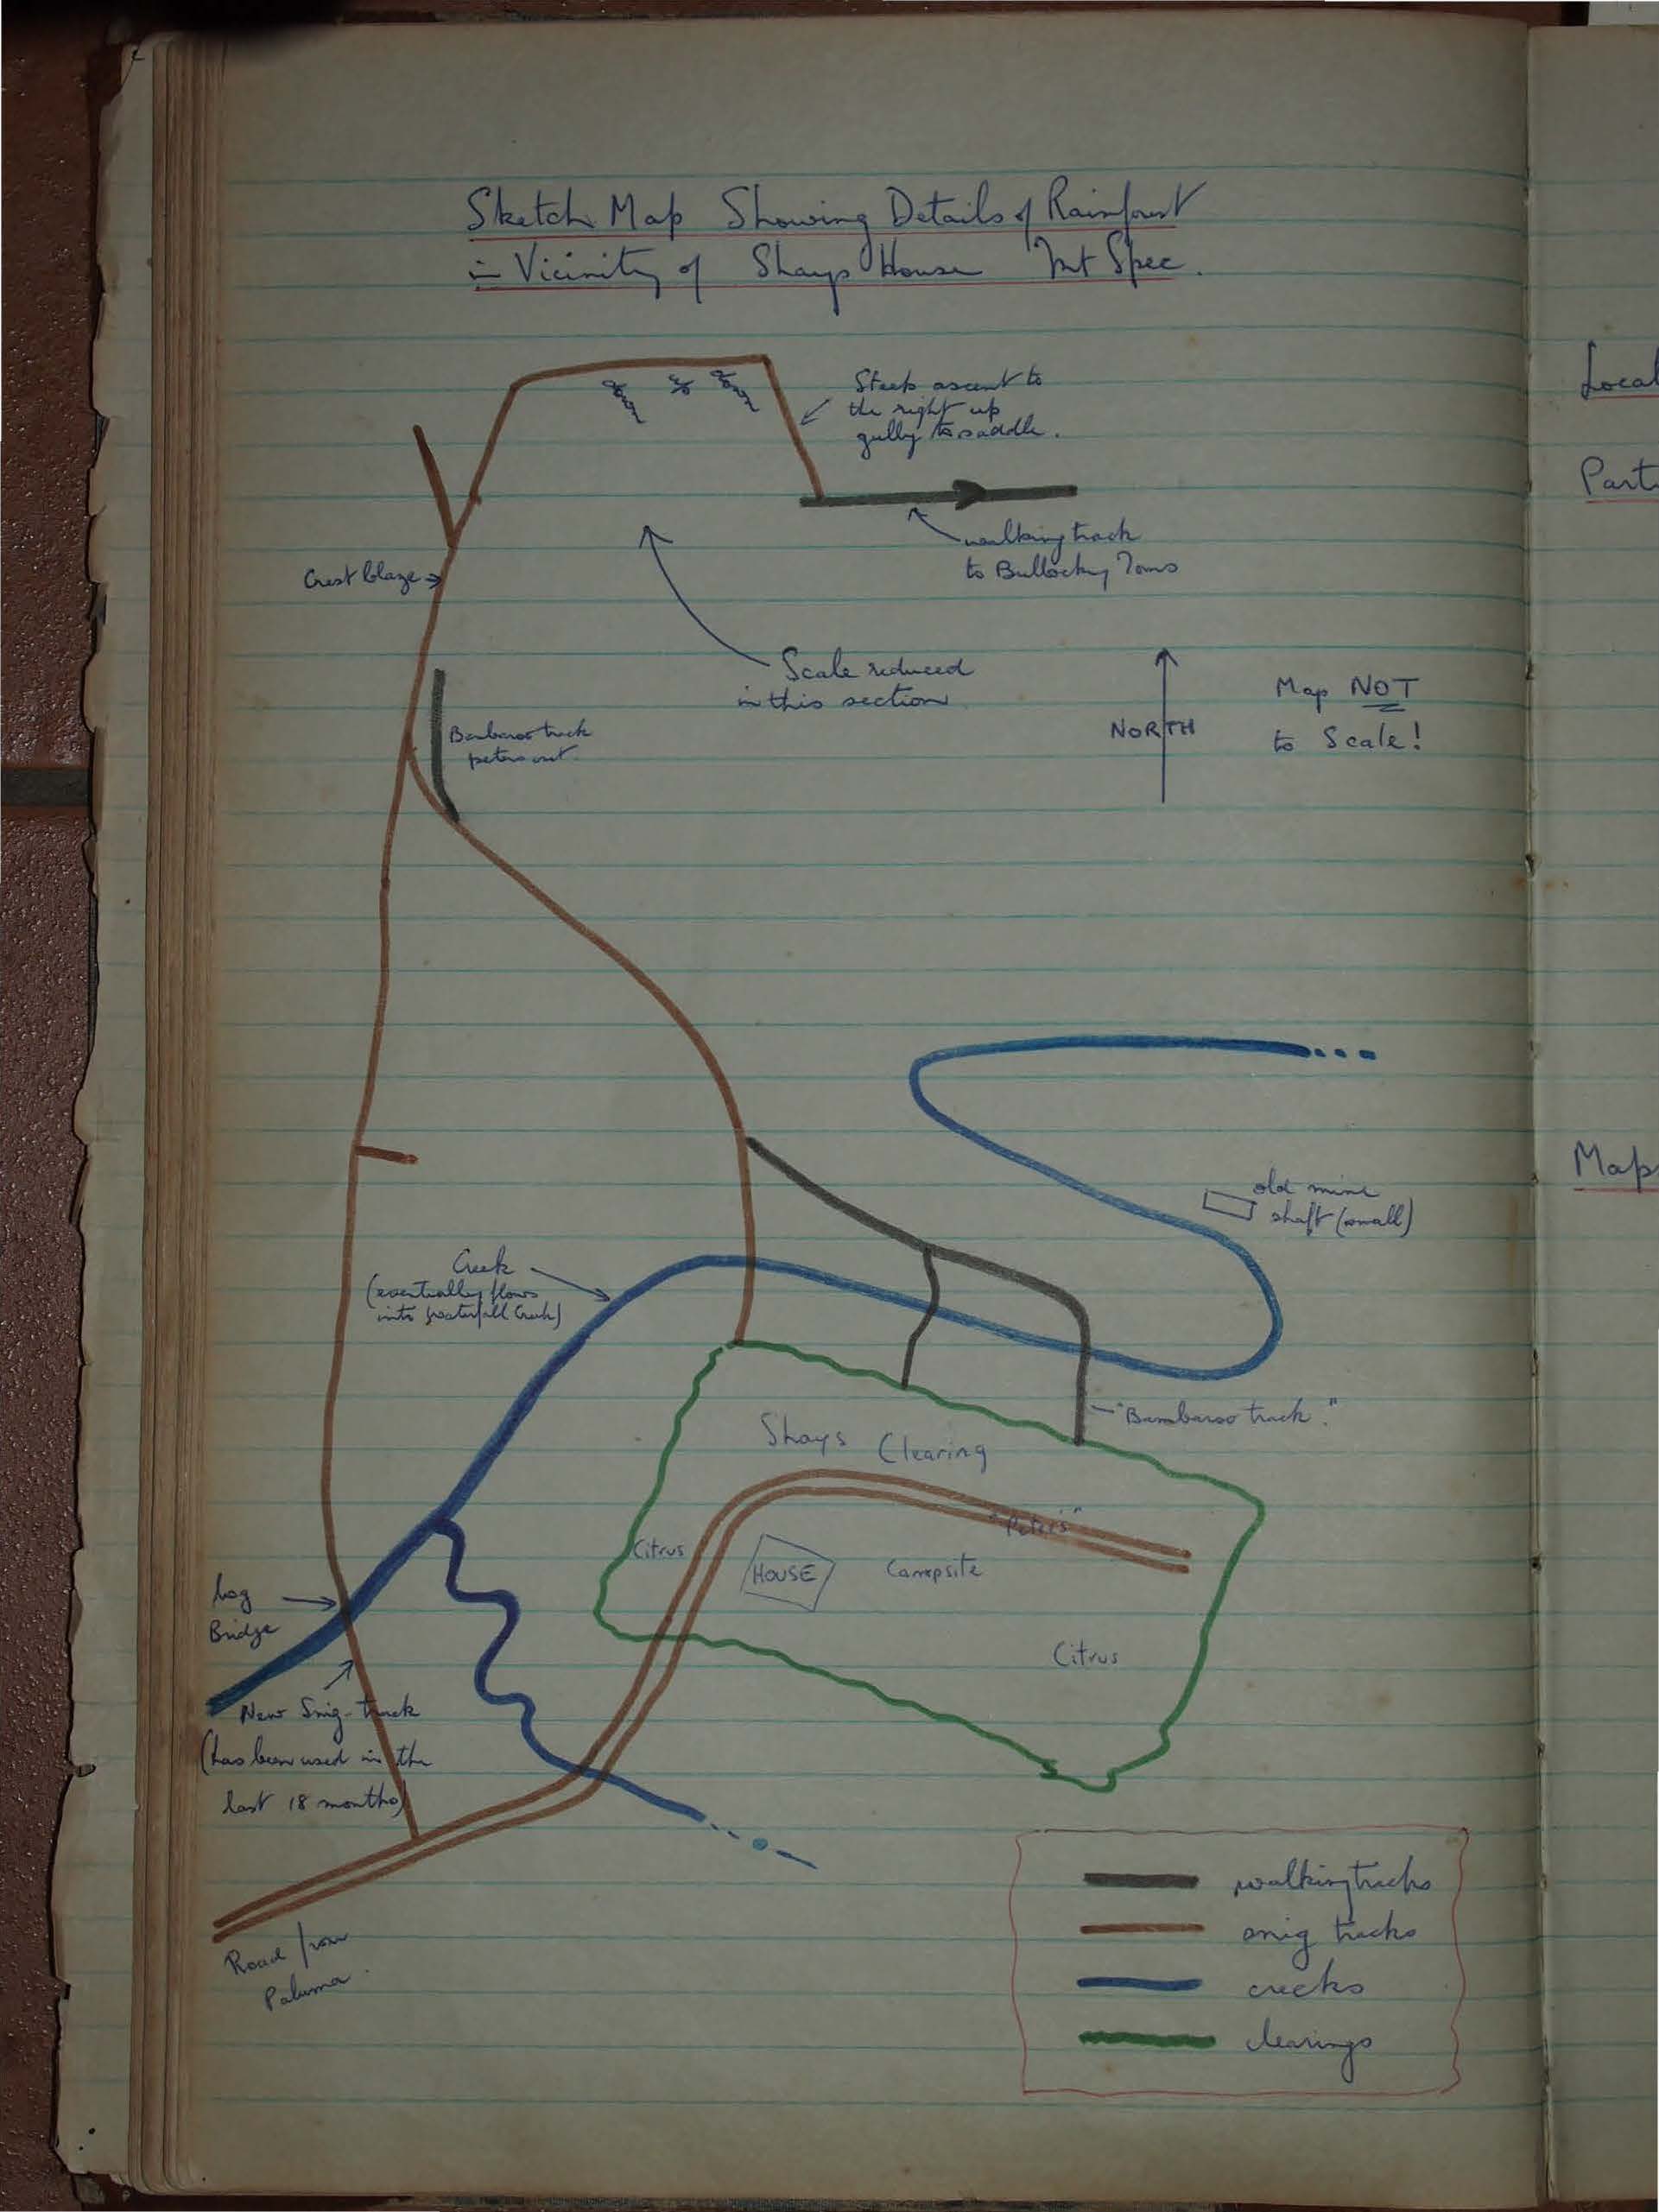 Sketch Map Showing Details of Rainforest
in Vicinity of Shays House Mt Spec.
Steep ascent to
the right up
gully to saddle.
Local
Part
walking track
to Bullocky Toms
Crest blaze
Scale reduced
in this section
NORTH
Map NOT
to Scale!
Bambaroo track
peters out.
Map
old mine
shaft (small)
Creek
(eventually flows
into Waterfall Creek)
"Bambaroo track."
Shays Clearing
"Peters"
Citrus
HOUSE
Campsite
Log
Bridge
Citrus
New Snig-track
(has been used in the
last 18 months)
walking tracks
snig tracks
creeks
clearings
Road from
Paluma.